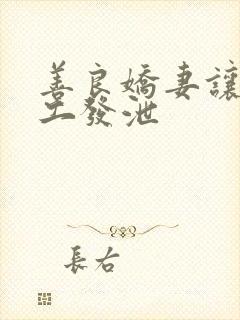 善良嬌妻讓
工發泄
長右